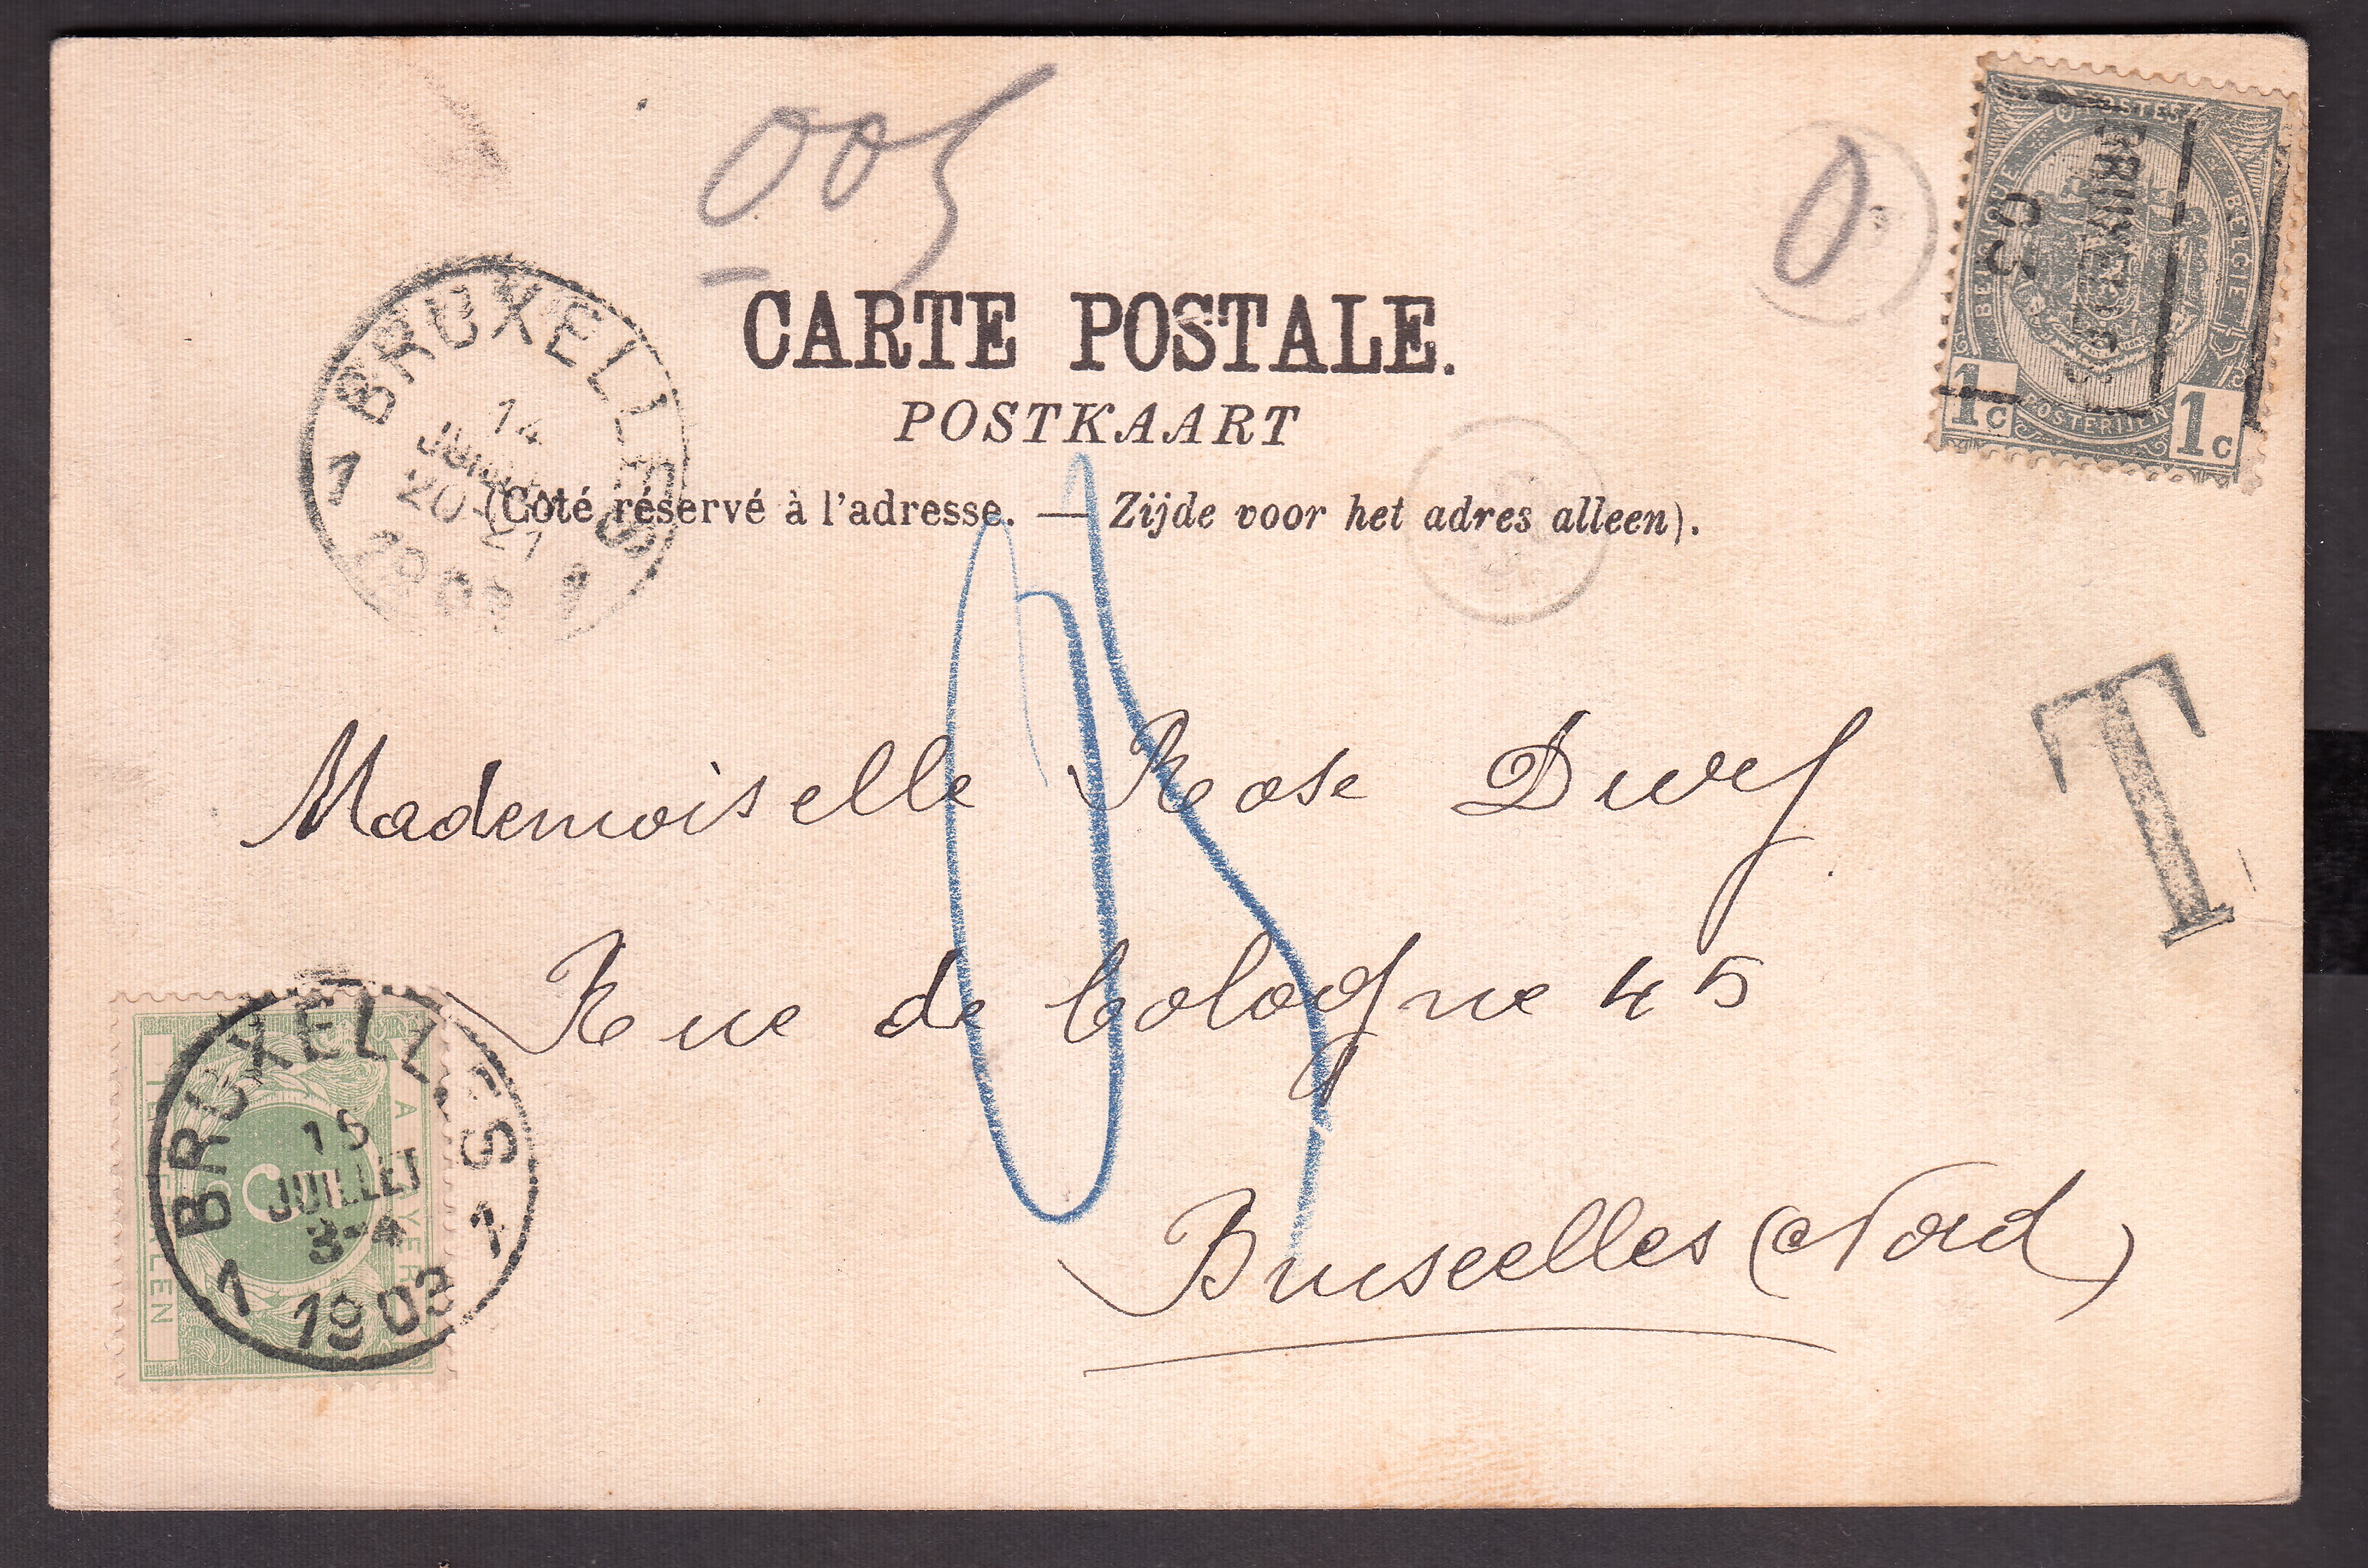 005
CARTE POSTALE.
POSTKAART
(Côté réservé à l'adresse. — Zijde voor het adres alleen).
BRUXELLES
14
JUILLET
20-21
1 1903 1
0
POSTES
BELGIQUE BELGIË
POSTERIJEN
1c 1c
BRUXELLES
03
T
Mademoiselle Rose
Rue de Cologne 45
Bruxelles (Nord)
A PAYER
TE BETALEN
5
BRUXELLES
15
JUILLET
3-4
1 1903 1